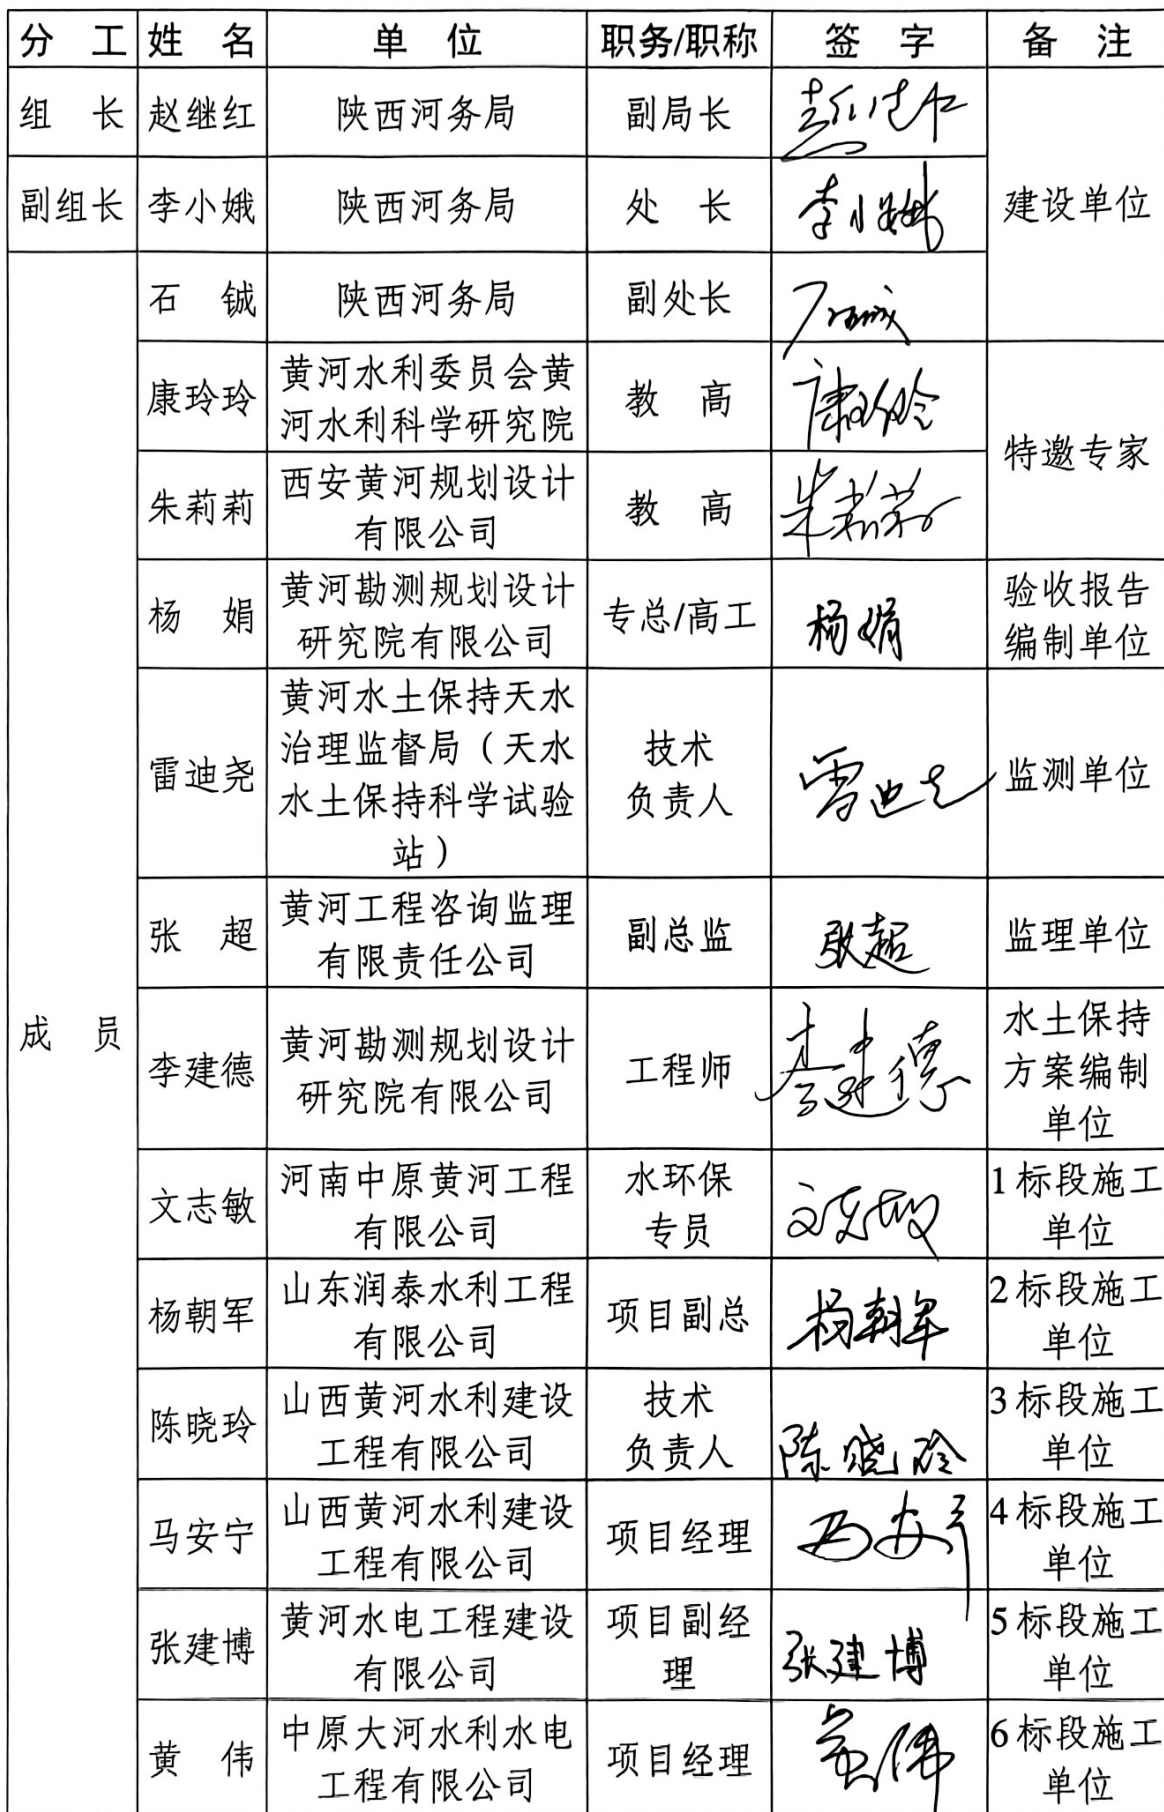 分 工 姓 名 单 位 职务/职称 签 字 备 注
组 长 赵继红 陕西河务局 副局长
副组长 李小娥 陕西河务局 处 长 李小娥
建设单位
石 铖 陕西河务局 副处长 石铖
康玲玲
黄河水利委员会黄
河水利科学研究院
教 高
康玲玲
朱莉莉
西安黄河规划设计
有限公司
教 高
朱莉莉
特邀专家
杨 娟
黄河勘测规划设计
研究院有限公司
专总/高工
杨娟
验收报告
编制单位
雷迪尧
黄河水土保持天水
治理监督局（天水
水土保持科学试验
站）
技术
负责人
雷迪尧
监测单位
张 超
黄河工程咨询监理
有限责任公司
副总监
张超
监理单位
成 员
李建德
黄河勘测规划设计
研究院有限公司
工程师
李建德
水土保持
方案编制
单位
文志敏
河南中原黄河工程
有限公司
水环保
专员
文志敏
1标段施工
单位
杨朝军
山东润泰水利工程
有限公司
项目副总
杨朝军
2标段施工
单位
陈晓玲
山西黄河水利建设
工程有限公司
技术
负责人
陈晓玲
3标段施工
单位
马安宁
山西黄河水利建设
工程有限公司
项目经理
马安宁
4标段施工
单位
张建博
黄河水电工程建设
有限公司
项目副经
理
张建博
5标段施工
单位
黄 伟
中原大河水利水电
工程有限公司
项目经理
黄伟
6标段施工
单位